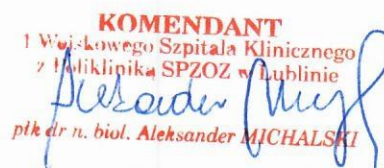 KOMENDANT
1 Wojskowego Szpitala Klinicznego
z Polikliniką SPZOZ w Lublinie
Aleksander
płk dr n. biol. Aleksander MICHALSKI